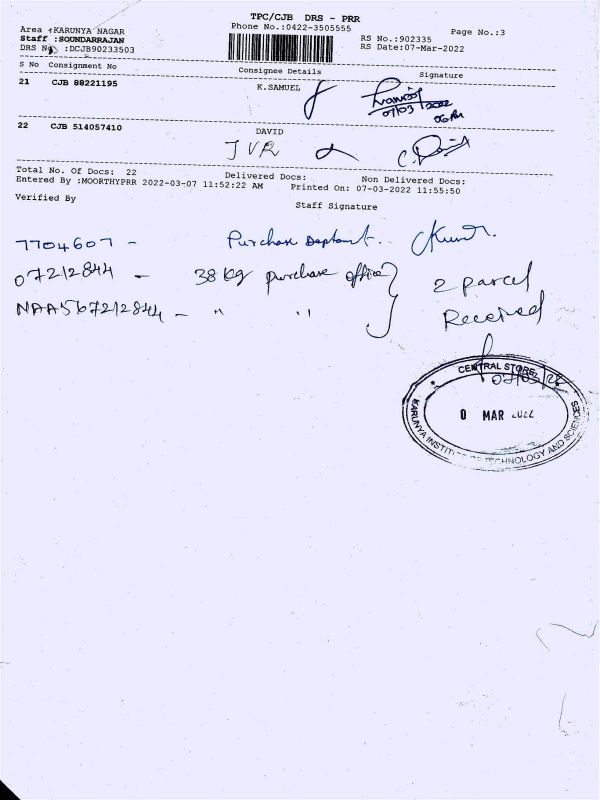 TPC/CJB DRS - PRR
Phone No.:0422-3505555
Page No.:3
Area :KARUNYA NAGAR
Staff :SOUNDARRAJAN
DRS No :DCJB90233503
RS No.:902335
RS Date:07-Mar-2022
S No Consignment No Consignee Details Signature
21 CJB 88221195 K.SAMUEL
07/03/2022
22 CJB 514057410 DAVID
JVR
Total No. Of Docs: 22 Delivered Docs: Non Delivered Docs:
Entered By :MOORTHYPRR 2022-03-07 11:52:22 AM Printed On: 07-03-2022 11:55:50
Verified By Staff Signature
7704607 - Purchase
07212844 - 38 kg purchase office
2 parcel
NAA567212844 - " "
Received
CENTRAL STORE
07/03/22
0 MAR 2022
KARUNYA INSTITUTE OF TECHNOLOGY AND SCIENCES